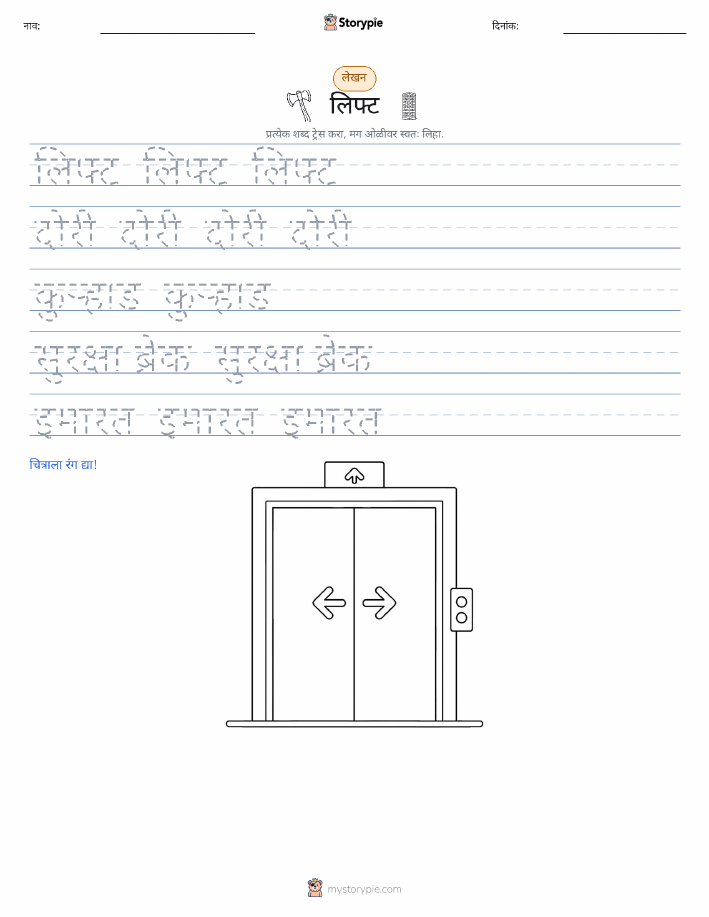 नाव:
Storypie
दिनांक:
लेखन
लिफ्ट
प्रत्येक शब्द ट्रेस करा, मग ओळीवर स्वतः लिहा.
लिफ्ट लिफ्ट लिफ्ट
दोरी दोरी दोरी दोरी
कुऱ्हाड कुऱ्हाड
सुरक्षा ब्रेक सुरक्षा ब्रेक
इमारत इमारत इमारत
चित्राला रंग द्या!
mystorypie.com